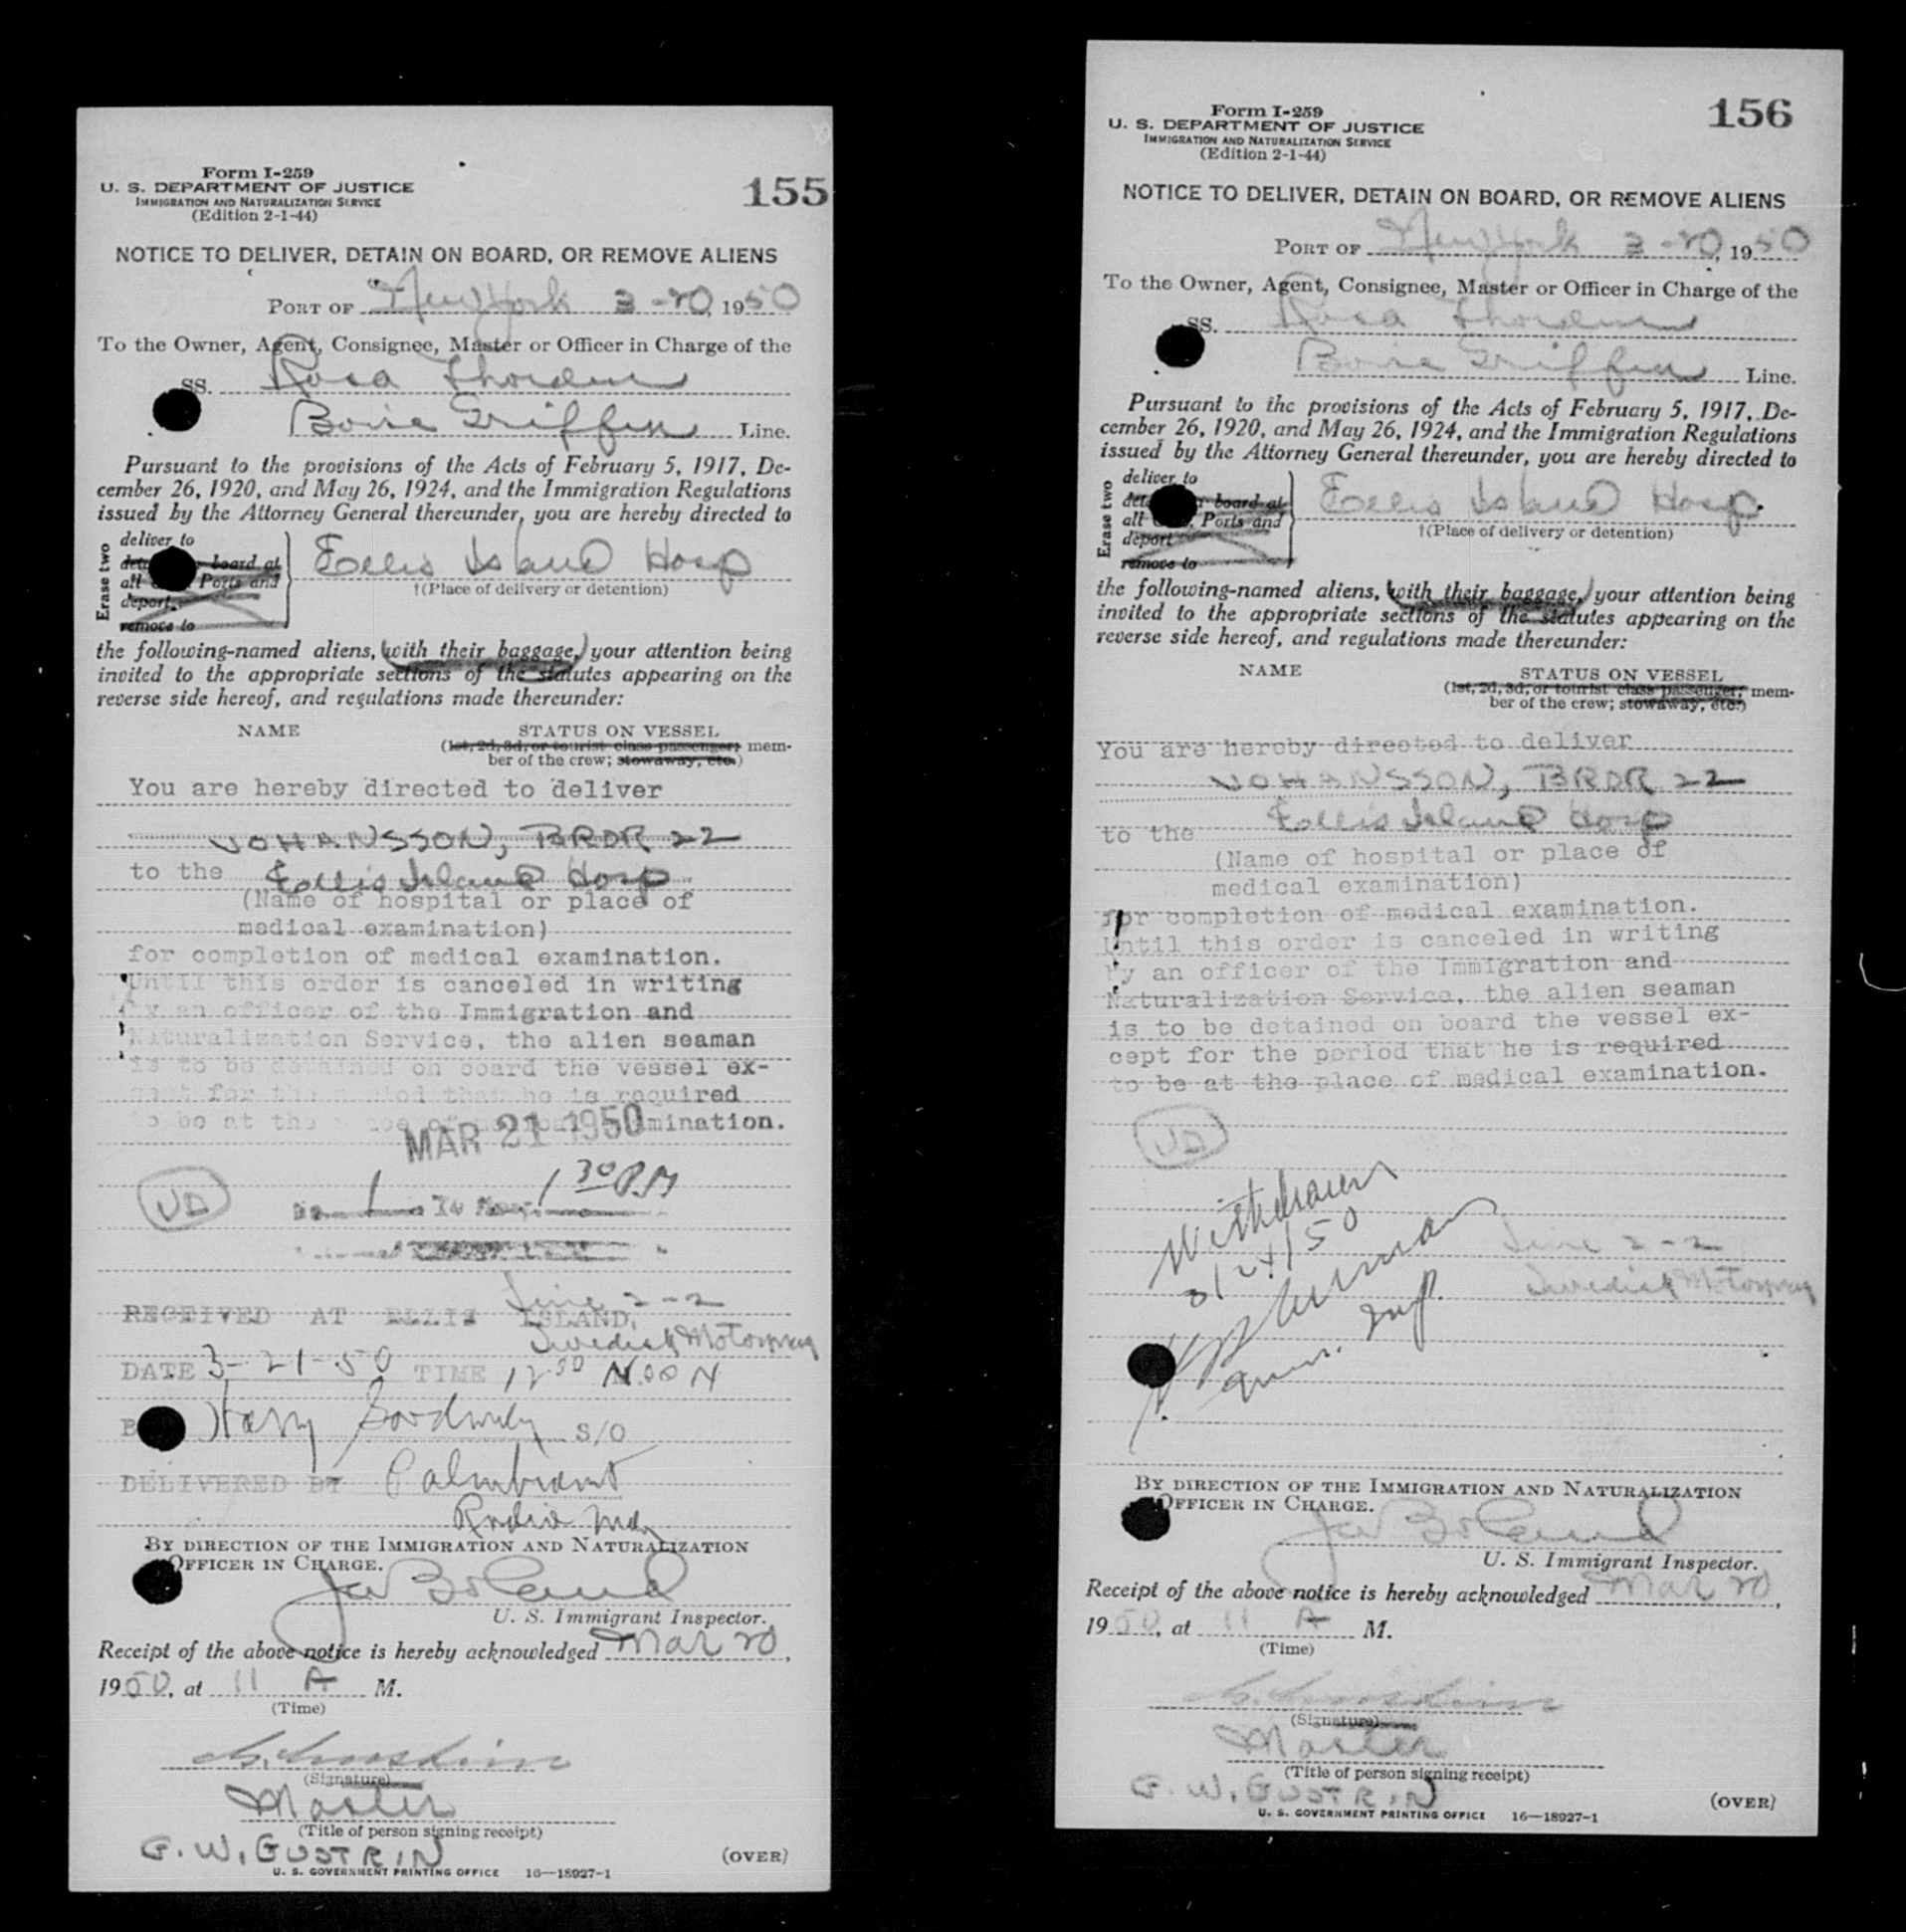 155
Form I-259
U. S. DEPARTMENT OF JUSTICE
IMMIGRATION AND NATURALIZATION SERVICE
(Edition 2-1-44)
NOTICE TO DELIVER, DETAIN ON BOARD, OR REMOVE ALIENS
PORT OF New York 3-20, 1950
To the Owner, Agent, Consignee, Master or Officer in Charge of the
SS. Rosa Thorden
Boise Griffin Line.
Pursuant to the provisions of the Acts of February 5, 1917, De-
cember 26, 1920, and May 26, 1924, and the Immigration Regulations
issued by the Attorney General thereunder, you are hereby directed to
Erase two
deliver to
board at
all Ports and
deport
remove to
Ellis Island Hosp
†(Place of delivery or detention)
the following-named aliens, (with their baggage,) your attention being
invited to the appropriate sections of the statutes appearing on the
reverse side hereof, and regulations made thereunder:
NAME STATUS ON VESSEL
(1st, 2d, 3d, or tourist class passenger; mem-
ber of the crew; stowaway, etc.)
You are hereby directed to deliver
JOHANSSON, BROR 22
to the Ellis Island Hosp
(Name of hospital or place of
medical examination)
for completion of medical examination.
Until this order is canceled in writing
by an officer of the Immigration and
Naturalization Service, the alien seaman
is to be detained on board the vessel ex-
cept for the period that he is required
to be at the place of medical examination.
MAR 21 1950
1 30 P.M
VD
Line 2-2
RECEIVED AT ELLIS ISLAND,
Swedish Motorman
DATE 3-21-50 TIME 12 00 NOON
Harry S/O
DELIVERED BY Palmbrant
Radio
BY DIRECTION OF THE IMMIGRATION AND NATURALIZATION
OFFICER IN CHARGE.
U. S. Immigrant Inspector.
Receipt of the above notice is hereby acknowledged Mar 20,
1950, at 11 A M.
(Time)
(Signature)
Master
(Title of person signing receipt)
G. W. GUSTRIN
(OVER)
U. S. GOVERNMENT PRINTING OFFICE 16—18927-1
156
Form I-259
U. S. DEPARTMENT OF JUSTICE
IMMIGRATION AND NATURALIZATION SERVICE
(Edition 2-1-44)
NOTICE TO DELIVER, DETAIN ON BOARD, OR REMOVE ALIENS
PORT OF New York 3-20, 1950
To the Owner, Agent, Consignee, Master or Officer in Charge of the
SS. Rosa Thorden
Boise Griffin Line.
Pursuant to the provisions of the Acts of February 5, 1917, De-
cember 26, 1920, and May 26, 1924, and the Immigration Regulations
issued by the Attorney General thereunder, you are hereby directed to
Erase two
deliver to
board at
all Ports and
deport
remove to
Ellis Island Hosp.
†(Place of delivery or detention)
the following-named aliens, (with their baggage,) your attention being
invited to the appropriate sections of the statutes appearing on the
reverse side hereof, and regulations made thereunder:
NAME STATUS ON VESSEL
(1st, 2d, 3d, or tourist class passenger; mem-
ber of the crew; stowaway, etc.)
You are hereby directed to deliver
JOHANSSON, BROR 22
to the Ellis Island Hosp
(Name of hospital or place of
medical examination)
for completion of medical examination.
Until this order is canceled in writing
by an officer of the Immigration and
Naturalization Service, the alien seaman
is to be detained on board the vessel ex-
cept for the period that he is required
to be at the place of medical examination.
VD
Withdrawn
3/24/50
Line 2-2
Swedish Motorman
Imm. Insp.
BY DIRECTION OF THE IMMIGRATION AND NATURALIZATION
OFFICER IN CHARGE.
U. S. Immigrant Inspector.
Receipt of the above notice is hereby acknowledged Mar 20,
1950, at 11 A M.
(Time)
(Signature)
Master
(Title of person signing receipt)
G. W. GUSTRIN
(OVER)
U. S. GOVERNMENT PRINTING OFFICE 16—18927-1